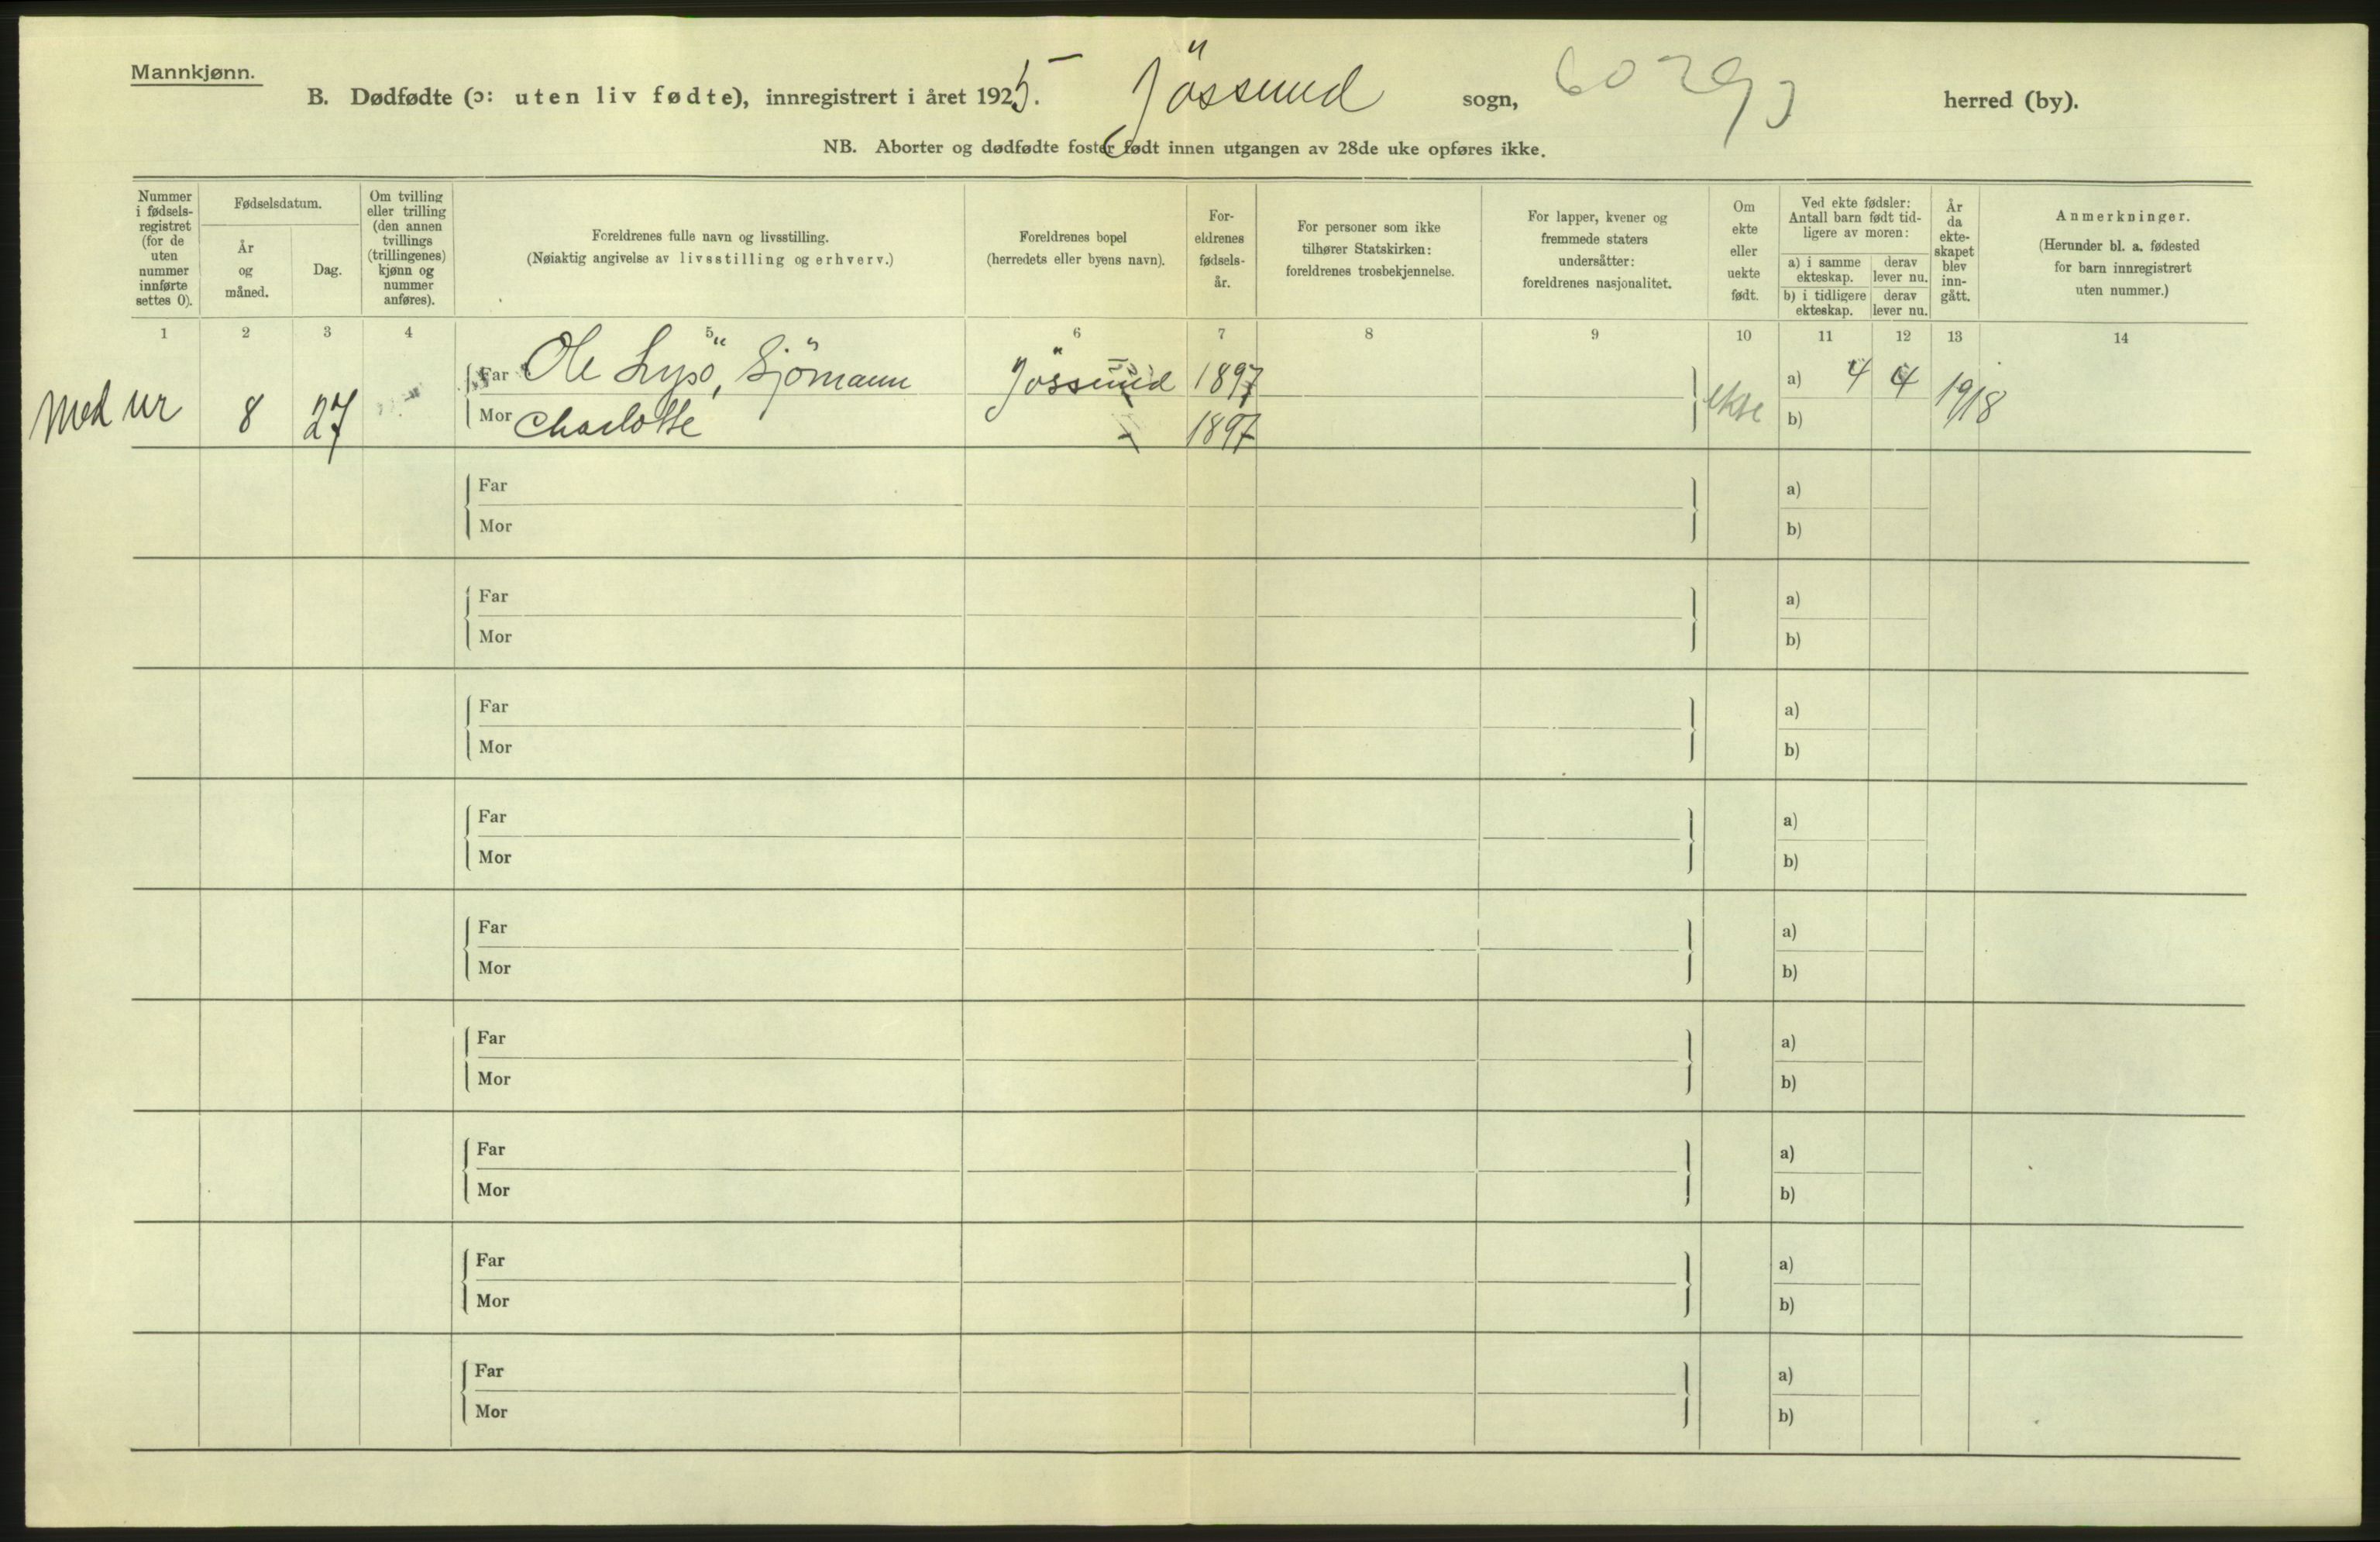 Mannkjønn.
B. Dødfødte (ɔ: uten liv fødte), innregistrert i året 1925. Jössund sogn, herred (by).
NB. Aborter og dødfødte foster født innen utgangen av 28de uke opføres ikke.
Nummer i fødsels-registret (for de uten nummer innførte settes 0).
Fødselsdatum.
År og måned.
Dag.
Om tvilling eller trilling (den annen tvillings (trillingenes) kjønn og nummer anføres).
Foreldrenes fulle navn og livsstilling.
(Nøiaktig angivelse av livsstilling og erhverv.)
Foreldrenes bopel
(herredets eller byens navn).
For-eldrenes fødsels-år.
For personer som ikke tilhører Statskirken: foreldrenes trosbekjennelse.
For lapper, kvener og fremmede staters undersåtter: foreldrenes nasjonalitet.
Om ekte eller uekte født.
Ved ekte fødsler: Antall barn født tid-ligere av moren:
a) i samme ekteskap.
derav lever nu.
b) i tidligere ekteskap.
derav lever nu.
År da ekte-skapet blev inn-gått.
Anmerkninger.
(Herunder bl. a. fødested for barn innregistrert uten nummer.)
1 2 3 4 5 6 7 8 9 10 11 12 13 14
Far Ole Lysö, Sjömann Jössund 1897 a) 4 4
Med nr 8 27 Mor Charlotte 1897 ekte b) 1918
Far a)
Mor b)
Far a)
Mor b)
Far a)
Mor b)
Far a)
Mor b)
Far a)
Mor b)
Far a)
Mor b)
Far a)
Mor b)
Far a)
Mor b)
Far a)
Mor b)